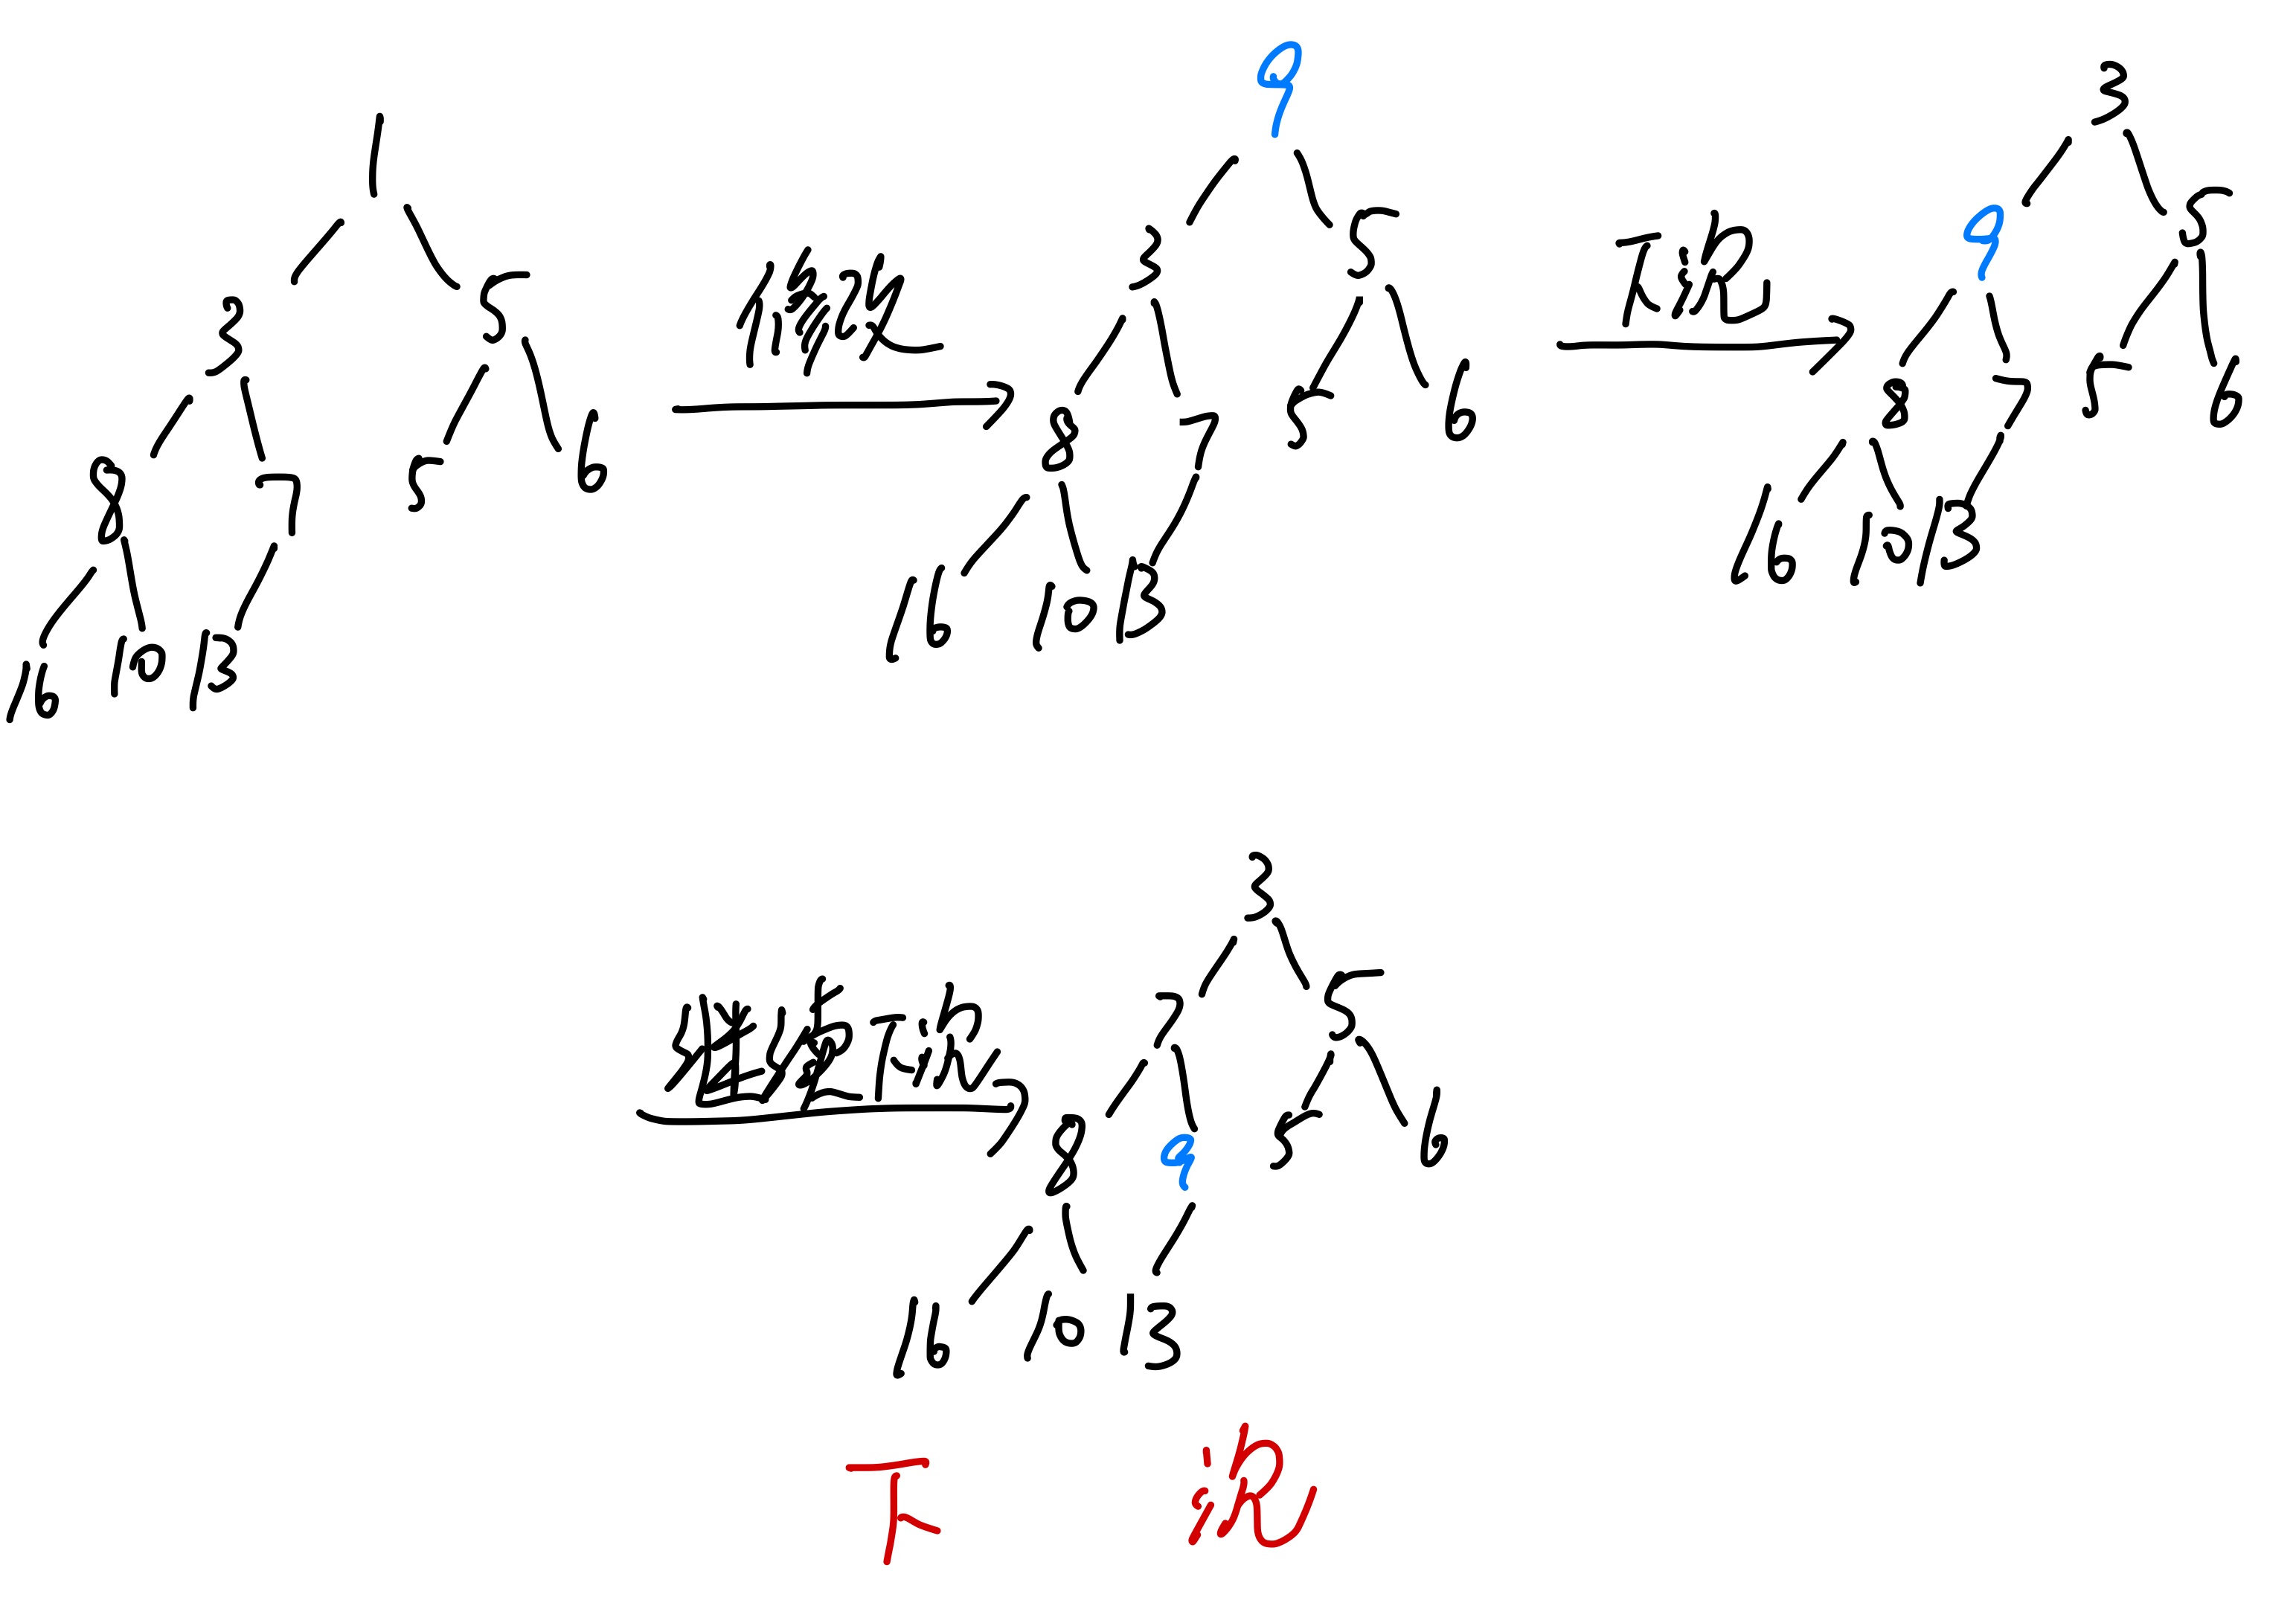 1
3 5
8 7 5 6
16 10 13
修改
9
3 5
8 7 5 6
16 10 13
下沉
3
9 5
8 7 5 6
16 10 13
继续下沉
3
7 5
8 9 5 6
16 10 13
下 沉